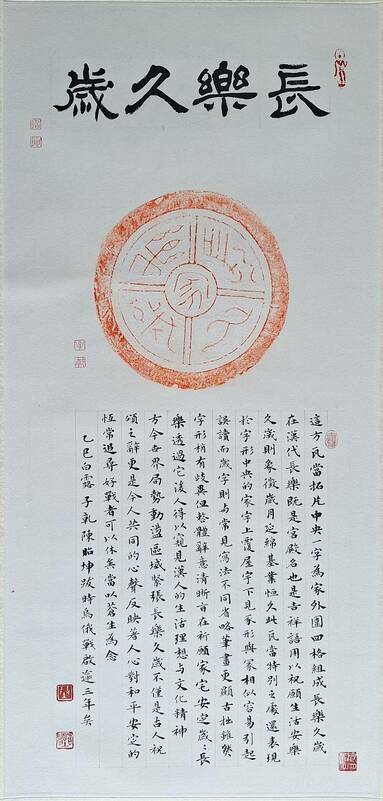 長樂久歲
家
這方瓦當拓片中央一字為家外圍四格組成長樂久歲
在漢代長樂既是宮殿名也是吉祥語用以祝願生活安樂
久歲則象徵歲月延綿基業恒久此瓦當特別之處還表現
於字形中央的家字上覆屋宇下見豕形與冢相似容易引起
誤讀而歲字則與常見寫法不同省略筆畫更顯古拙雖然
字形稍有歧異但整體辭意清晰旨在祈願家宅安定歲歲長
樂透過它後人得以窺見漢人的生活理想與文化精神
方今世界局勢動盪區域緊張長樂久歲不僅是古人祝
頌之辭更是今人共同的心聲反映著人心對和平安定的
恆常追尋好戰者可以休矣當以蒼生為念
乙巳白露子乾陳昭坤跋時烏俄戰啟逾三年矣